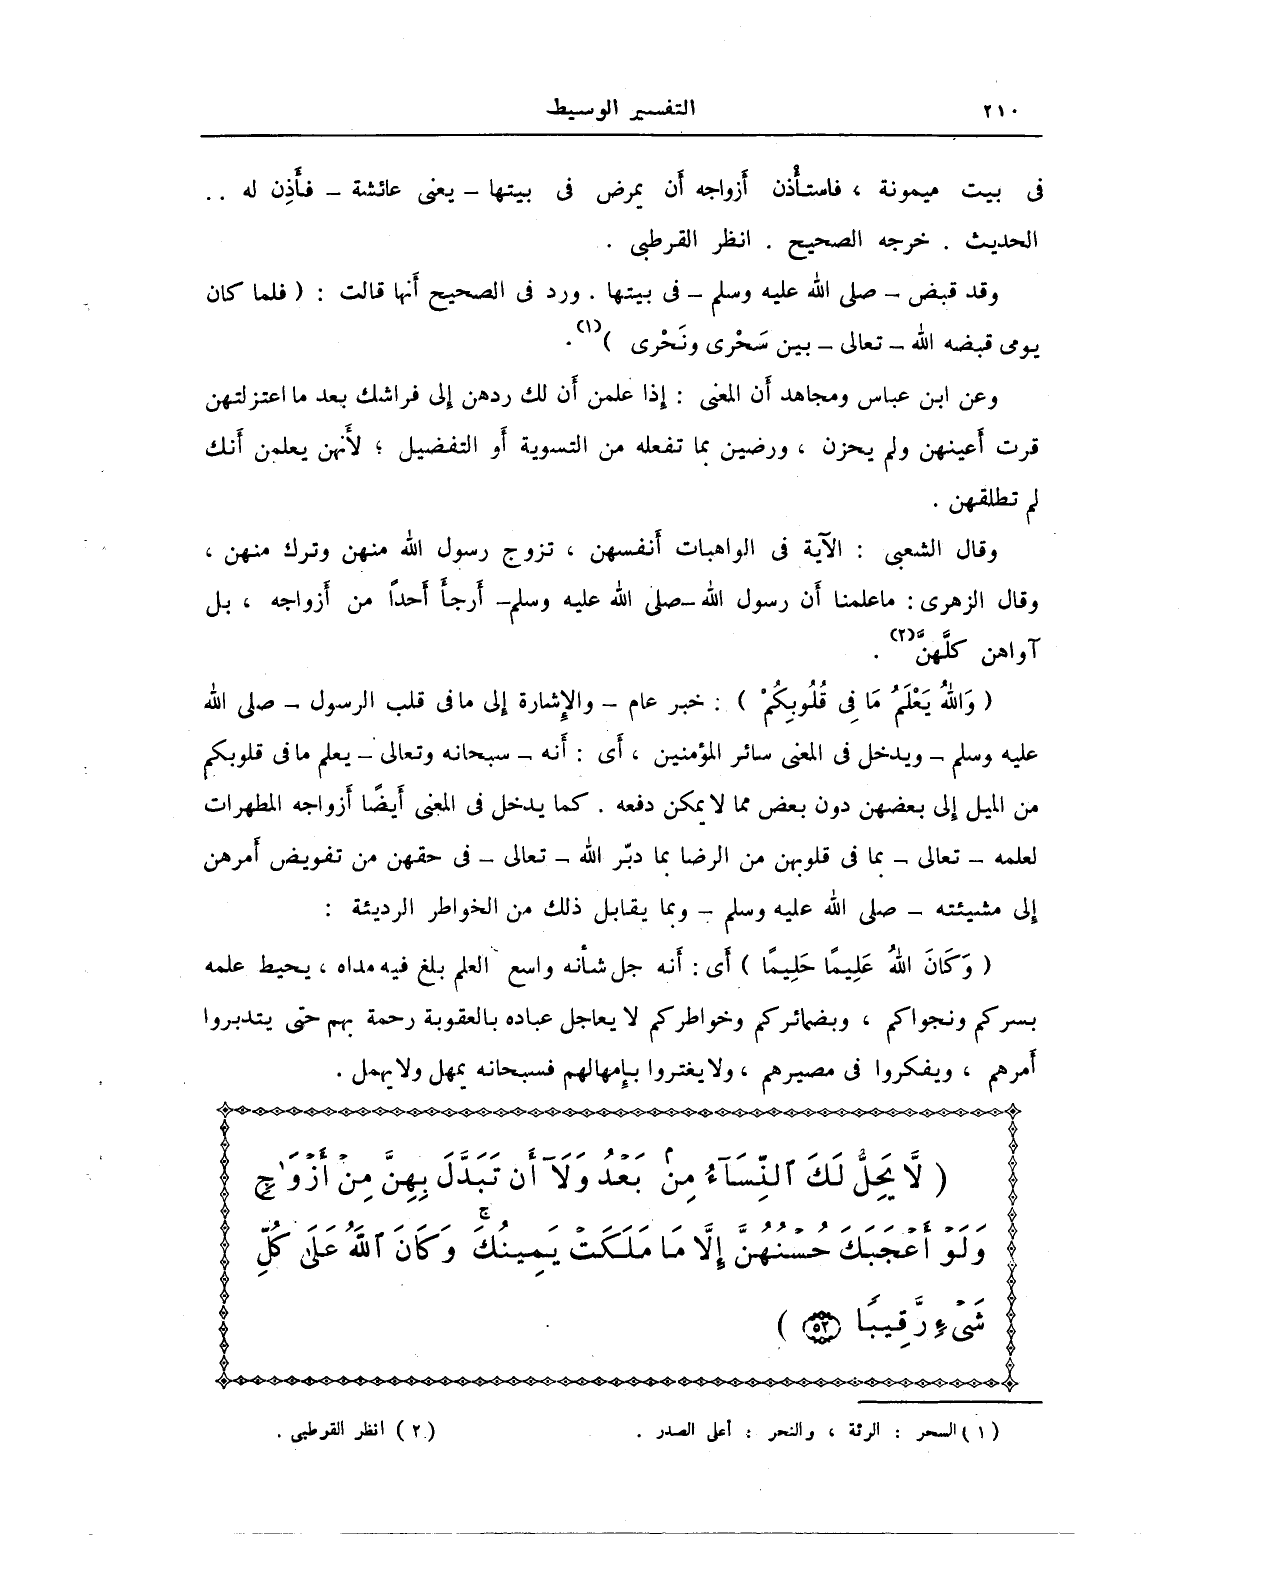 ٢١٠ التفسير الوسيط
فى بيت ميمونة ، فاستأْذن أَزواجه أَن يمرض فى بيتها – يعنى عائشة – فأَذِن له ..
الحديث . خرجه الصحيح . انظر القرطبى .
وقد قبض – صلى الله عليه وسلم – فى بيتها . ورد فى الصحيح أَنها قالت : ( فلما كان
يومى قبضه الله – تعالى – بين سَحْرى ونَحْرى )(١).
وعن ابن عباس ومجاهد أَن المعنى : إِذا علمن أَن لك ردهن إِلى فراشك بعد ما اعتزلتهن
قرت أَعينهن ولم يحزن ، ورضين بما تفعله من التسوية أَو التفضيل ؛ لأَنهن يعلمن أَنك
لم تطلقهن .
وقال الشعبى : الآية فى الواهبات أَنفسهن ، تزوج رسول الله منهن وترك منهن ،
وقال الزهرى : ماعلمنا أَن رسول الله –صلى الله عليه وسلم– أَرجأَ أَحدًا من أَزواجه ، بل
آواهن كلَّهنَّ(٢) .
( وَاللهُ يَعْلَمُ مَا فِى قُلُوبِكُمْ ) : خبر عام – والإِشارة إِلى مافى قلب الرسول – صلى الله
عليه وسلم – ويدخل فى المعنى سائر المؤمنين ، أَى : أَنه – سبحانه وتعالى – يعلم مافى قلوبكم
من الميل إِلى بعضهن دون بعض مما لا يمكن دفعه . كما يدخل فى المعنى أَيضًا أَزواجه المطهرات
لعلمه – تعالى – بما فى قلوبهن من الرضا بما دبّر الله – تعالى – فى حقهن من تفويض أَمرهن
إِلى مشيئته – صلى الله عليه وسلم – وبما يقابل ذلك من الخواطر الرديئة :
( وَكَانَ اللهُ عَلِيمًا حَلِيمًا ) أَى : أَنه جل شأْنه واسع العلم بلغ فيه مداه ، يحيط علمه
بسركم ونجواكم ، وبضمائركم وخواطركم لا يعاجل عباده بالعقوبة رحمة بهم حتى يتدبروا
أَمرهم ، ويفكروا فى مصيرهم ، ولا يغتروا بإِمهالهم فسبحانه يمهل ولا يهمل .
( لَّا يَحِلُّ لَكَ ٱلنِّسَآءُ مِنۢ بَعْدُ وَلَآ أَن تَبَدَّلَ بِهِنَّ مِنْ أَزْوَٰجٍ
وَلَوْ أَعْجَبَكَ حُسْنُهُنَّ إِلَّا مَا مَلَكَتْ يَمِينُكَ ۗ وَكَانَ ٱللَّهُ عَلَىٰ كُلِّ
شَىْءٍ رَّقِيبًا ٥٢ )
(١) السحر : الرئة ، والنحر : أعلى الصدر . (٢) انظر القرطبى .